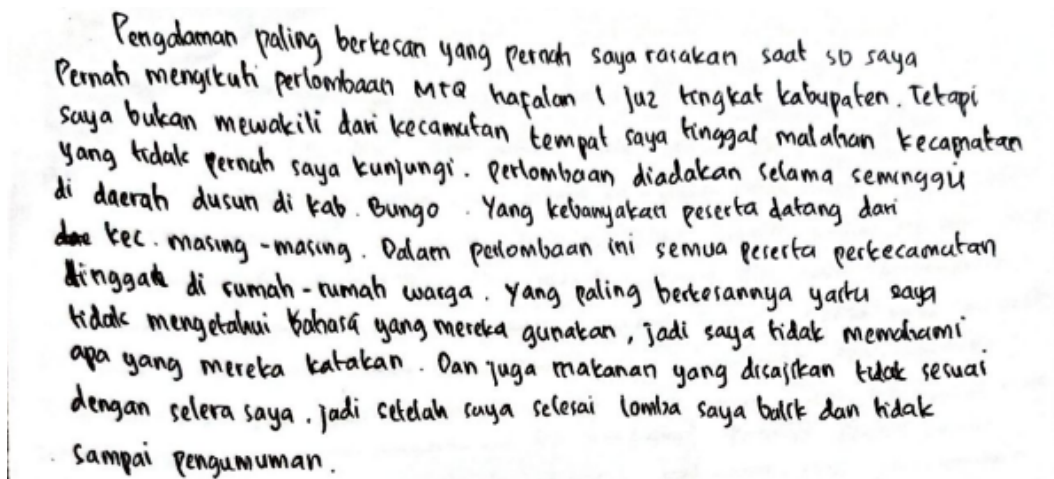 Pengalaman paling berkesan yang pernah saya rasakan saat SD saya
Pernah mengikuti perlombaan MTQ hafalan 1 juz tingkat kabupaten. Tetapi
saya bukan mewakili dari kecamatan tempat saya tinggal malahan kecamatan
yang tidak pernah saya kunjungi. Perlombaan diadakan selama seminggu
di daerah dusun di kab. Bungo. Yang kebanyakan peserta datang dari
kec. masing-masing. Dalam perlombaan ini semua peserta perkecamatan
tinggal di rumah-rumah warga. Yang paling berkesannya yaitu saya
tidak mengetahui bahasa yang mereka gunakan, jadi saya tidak memahami
apa yang mereka katakan. Dan juga makanan yang disajikan tidak sesuai
dengan selera saya. jadi setelah saya selesai lomba saya balik dan tidak
sampai pengumuman.